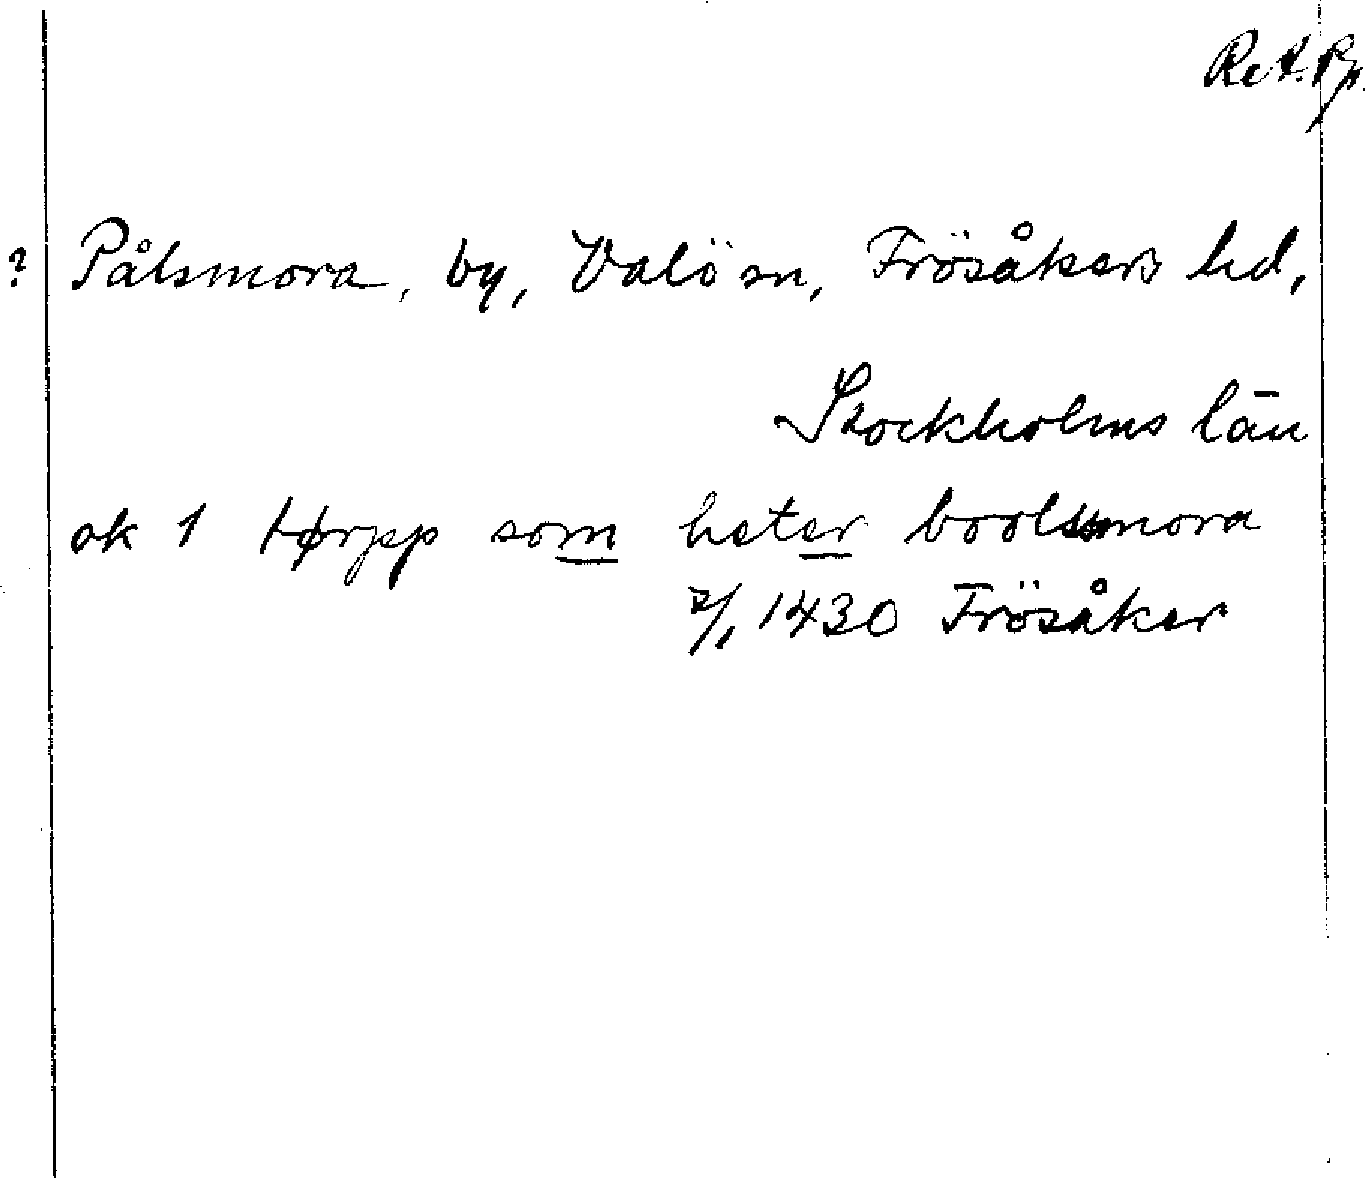 RA. Pp.
? Pålsmora, by, Valö sn, Frösåkers hd,
Stockholms län
ok 1 tørpp som heter boolsmora
2/1 1430 Frösåker